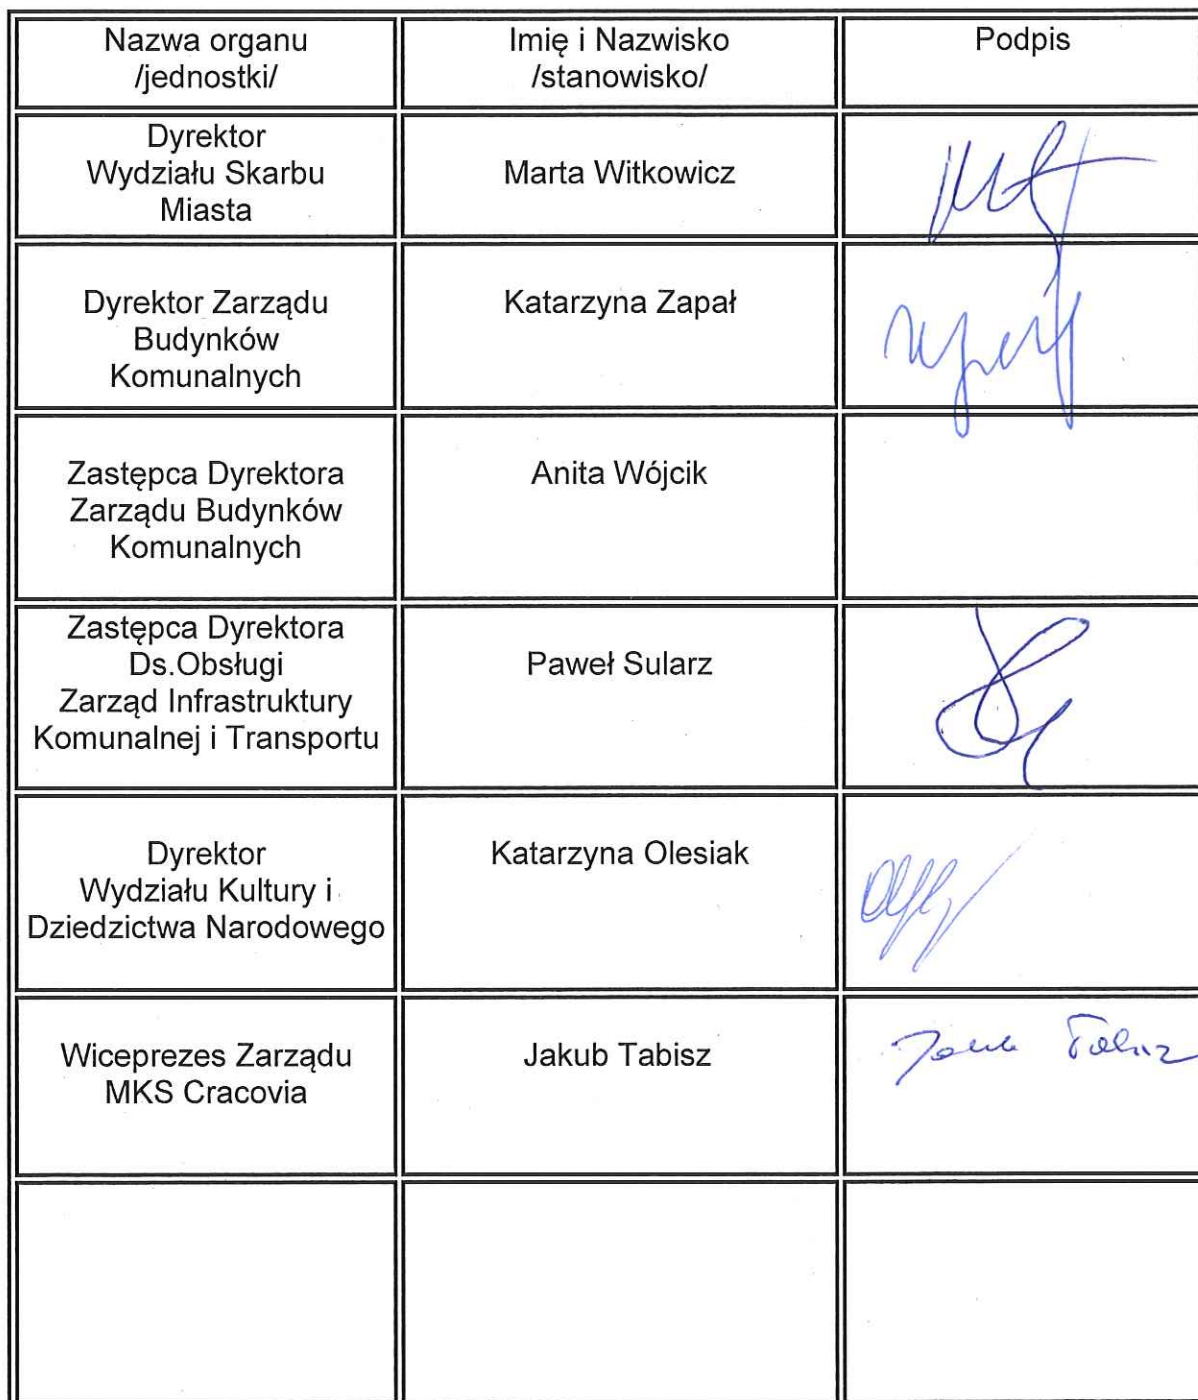 Nazwa organu
/jednostki/
Imię i Nazwisko
/stanowisko/
Podpis
Dyrektor
Wydziału Skarbu
Miasta
Marta Witkowicz
Dyrektor Zarządu
Budynków
Komunalnych
Katarzyna Zapał
Zastępca Dyrektora
Zarządu Budynków
Komunalnych
Anita Wójcik
Zastępca Dyrektora
Ds.Obsługi
Zarząd Infrastruktury
Komunalnej i Transportu
Paweł Sularz
Dyrektor
Wydziału Kultury i
Dziedzictwa Narodowego
Katarzyna Olesiak
Wiceprezes Zarządu
MKS Cracovia
Jakub Tabisz